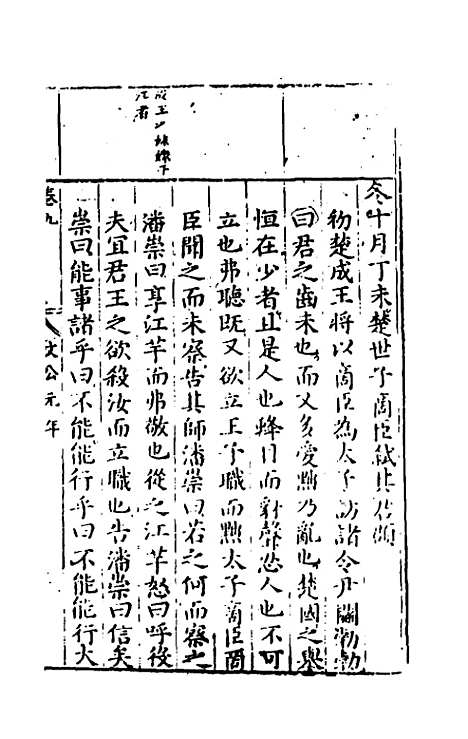 成王少妹嫁下
江者
冬十月丁未楚世子商臣弒其君頵
初楚成王將以商臣為太子訪諸令尹鬬勃勃
曰君之齒未也而又多愛黜乃亂也楚國之舉
恒在少者且是人也蜂目而豺聲忍人也不可
立也弗聽既又欲立王子職而黜太子商臣商
臣聞之而未察告其師潘崇曰若之何而察之
潘崇曰享江芊而弗敬也從之江芊怒曰呼役
夫宜君王之欲殺汝而立職也告潘崇曰信矣
崇曰能事諸乎曰不能能行乎曰不能能行大
卷九
文公元年